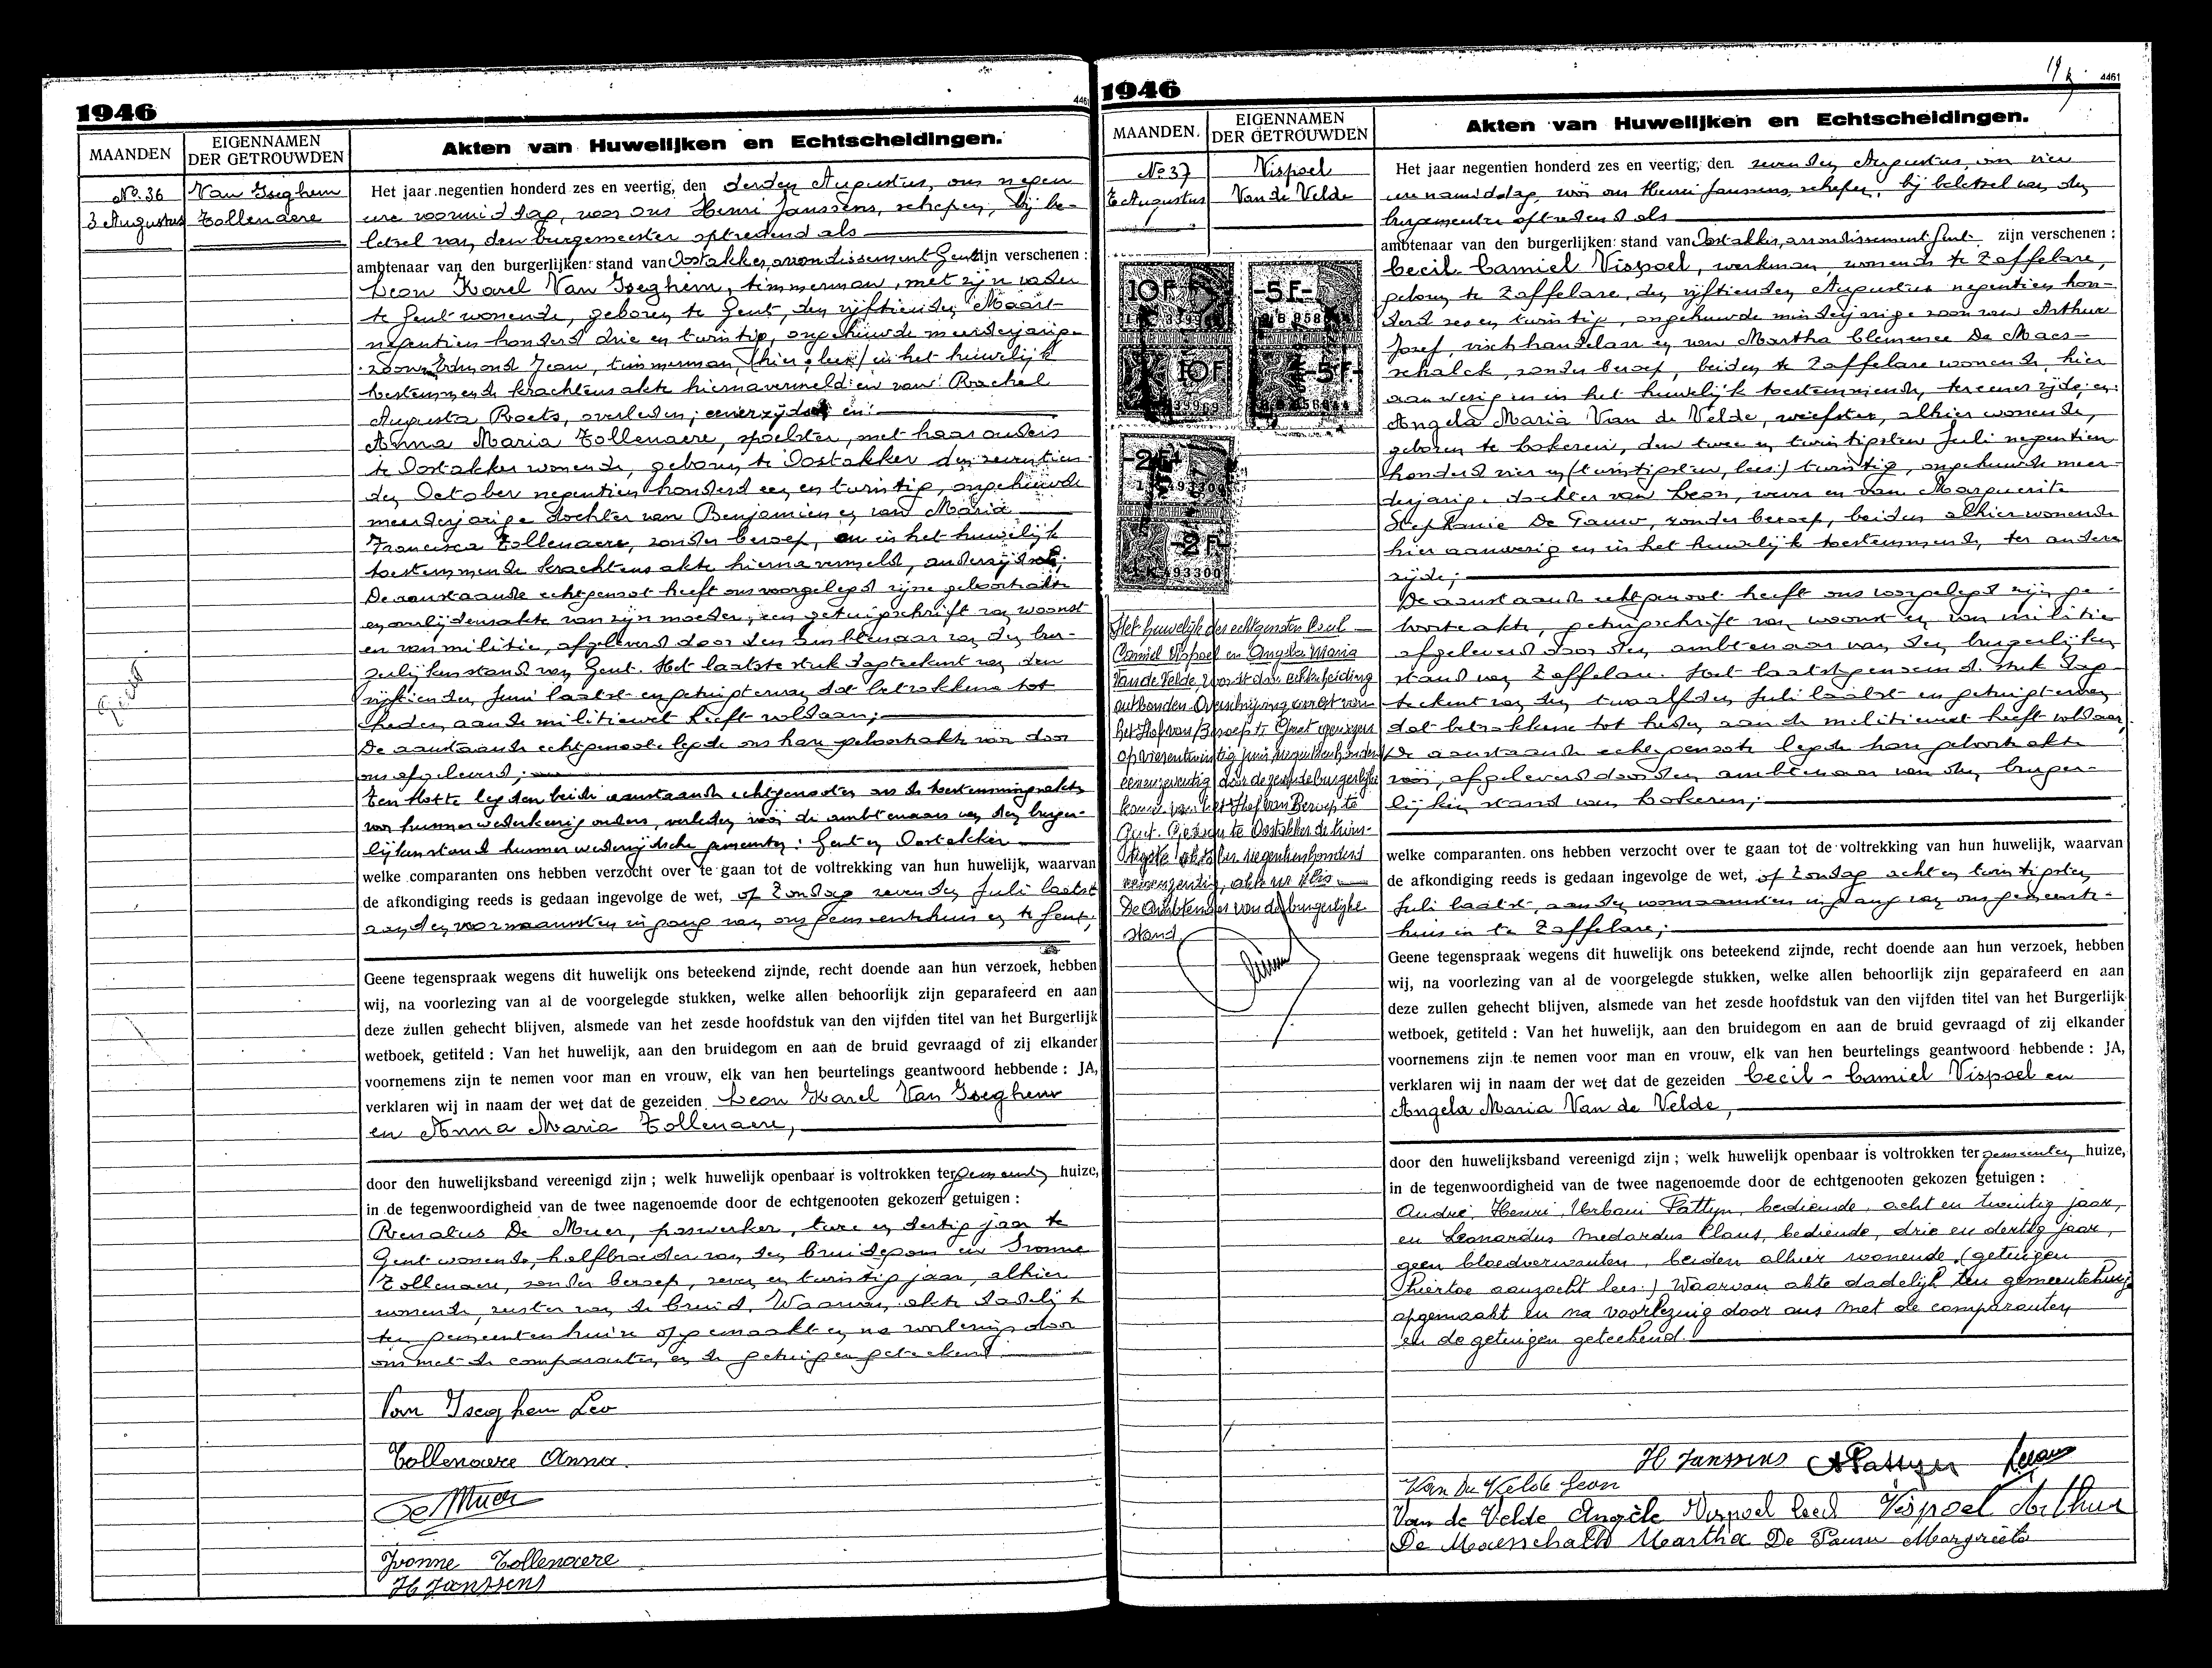 1946
4461
MAANDEN
EIGENNAMEN
DER GETROUWDEN
Akten van Huwelijken en Echtscheidingen.
No. 36
3 Augustus
Van Iseghem
Tollenaere
Het jaar negentien honderd zes en veertig, den derden Augustus, om negen
ure voormiddag, voor ons Henri Janssens, schepen, bij be-
letsel van den burgemeester optredend als
ambtenaar van den burgerlijken stand van Oostakker, arrondissement Gent zijn verschenen :
Leon Karel Van Iseghem, timmerman, met zijn vader
te Gent wonende, geboren te Gent, den vijftienden Maart
negentien honderd drie en twintig, ongehuwde meerderjarige
zoon van Edmond Jean, timmerman, (hier, lees) in het huwelijk
toestemmende krachtens akte hiernavermeld en van Rachel
Augusta Roets, overleden; eenerzijds en
Anna Maria Tollenaere, spoelster, met haar ouders
te Oostakker wonende, geboren te Oostakker den zeventien-
den October negentien honderd een en twintig, ongehuwde
meerderjarige dochter van Benjamien en van Maria
Francisca Tollenaere, zonder beroep, en in het huwelijk
toestemmende krachtens akte hierna vermeld, anderzijds;
De aanstaande echtgenoot heeft ons voorgelegd zijne geboorteakte
en overlijdensakte van zijn moeder, een getuigschrift van woonst
en van militie, afgeleverd door den ambtenaar van den bur-
gerlijken stand van Gent. Het laatste stuk dagteekent van den
vijftienden Juni laatst en getuigt ervan dat betrokkene tot
heden aan de militiewet heeft voldaan;
De aanstaande echtgenoote legde ons hare geboorteakte vóór door
ons afgeleverd;
Ten slotte legden beide aanstaande echtgenooten ons de toestemmingsakten
voor hunner wederkeerig ouders, verleden vóór de ambtenaars van den burger-
lijken stand hunner wederzijdsche gemeenten: Gent en Oostakker
welke comparanten ons hebben verzocht over te gaan tot de voltrekking van hun huwelijk, waarvan
de afkondiging reeds is gedaan ingevolge de wet, op Zondag zevenden Juli laatst
aan den voornaamsten ingang van ons gemeentehuis en te Gent;
Geene tegenspraak wegens dit huwelijk ons beteekend zijnde, recht doende aan hun verzoek, hebben
wij, na voorlezing van al de voorgelegde stukken, welke allen behoorlijk zijn geparafeerd en aan
deze zullen gehecht blijven, alsmede van het zesde hoofdstuk van den vijfden titel van het Burgerlijk
wetboek, getiteld : Van het huwelijk, aan den bruidegom en aan de bruid gevraagd of zij elkander
voornemens zijn te nemen voor man en vrouw, elk van hen beurtelings geantwoord hebbende : JA,
verklaren wij in naam der wet dat de gezeiden Leon Karel Van Iseghem
en Anna Maria Tollenaere,
door den huwelijksband vereenigd zijn ; welk huwelijk openbaar is voltrokken ter gemeenten huize,
in de tegenwoordigheid van de twee nagenoemde door de echtgenooten gekozen getuigen :
Renatus De Muer, paswerker, twee en dertig jaar te
Gent wonende, halfbroeder van den bruidegom en Ivonne
Tollenaere, zonder beroep, zeven en twintig jaar, alhier
wonende, zuster van de bruid. Waarvan akte dadelijk
ten gemeentenhuize opgemaakt en na voorlezing door
ons met de comparanten en de getuigen geteekend
Van Iseghem Leo
Tollenaere Anna.
De Muer
Jvonne Tollenaere
H Janssens
1946
4461
MAANDEN.
EIGENNAMEN
DER GETROUWDEN
Akten van Huwelijken en Echtscheidingen.
No 37
7 Augustus
Vispoel
Van de Velde
10 F
-5 F-
10 F
-5 F-
-2 F-
493300
-2 F-
493300
Het huwelijk der echtgenoten Cecil
Camiel Vispoel en Angela Maria
Van de Velde, wordt door echtscheiding
ontbonden. Overschrijving arrest van
het Hof van Beroep te Gent
op zesentwintig juni negentienhonderd
eenenzeventig door de burgerlijke
kamer van het Hof van Beroep te
Gent. te Oostakker de twin-
tigste oktober negentienhonderd
De Ambtenaar van de burgerlijke
stand
Het jaar negentien honderd zes en veertig, den zevenden Augustus, om vier
ure namiddag, vóór ons Henri Janssens, schepen, bij beletsel van den
burgemeester optredend als
ambtenaar van den burgerlijken stand van Oostakker, arrondissement Gent zijn verschenen :
Cecil Camiel Vispoel, werkman, wonende te Zaffelare,
geboren te Zaffelare, den vijftienden Augustus negentien hon-
derd zes en twintig, ongehuwde minderjarige zoon van Arthur
Jozef, vischhandelaar en van Martha Clemence De Maes-
schalck, zonder beroep, beiden te Zaffelare wonende, hier
aanwezig en in het huwelijk toestemmende, ter eener zijde; en:
Angela Maria Van de Velde, weefster, alhier wonende,
geboren te Lokeren, den twee en twintigsten Juli negentien
honderd vier en (twintigsten, lees:) twintig, ongehuwde meer-
derjarige dochter van Leon, wever en van Marguerite
Stephanie De Pauw, zonder beroep, beiden alhier wonende
hier aanwezig en in het huwelijk toestemmende, ter andere
zijde;
De aanstaande echtgenoot heeft ons voorgelegd zijn ge-
boorteakte, getuigschrift van woonst en van militie
afgeleverd door den ambtenaar van den burgerlijken
stand van Zaffelare. Het laatstgenoemde stuk dag-
teekent van den twaalfden Juli laatst en getuigt ervan
dat betrokkene tot heden aan de militiewet heeft voldaan.
De aanstaande echtgenoote legde hare geboorteakte
vóór, afgeleverd door den ambtenaar van den burger-
lijken stand van Lokeren;
welke comparanten ons hebben verzocht over te gaan tot de voltrekking van hun huwelijk, waarvan
de afkondiging reeds is gedaan ingevolge de wet, op Zondag acht en twintigsten
Juli laatst, aan den voornaamsten ingang van ons gemeente-
huis en te Zaffelare;
Geene tegenspraak wegens dit huwelijk ons beteekend zijnde, recht doende aan hun verzoek, hebben
wij, na voorlezing van al de voorgelegde stukken, welke allen behoorlijk zijn geparafeerd en aan
deze zullen gehecht blijven, alsmede van het zesde hoofdstuk van den vijfden titel van het Burgerlijk
wetboek, getiteld : Van het huwelijk, aan den bruidegom en aan de bruid gevraagd of zij elkander
voornemens zijn te nemen voor man en vrouw, elk van hen beurtelings geantwoord hebbende : JA,
verklaren wij in naam der wet dat de gezeiden Cecil - Camiel Vispoel en
Angela Maria Van de Velde,
door den huwelijksband vereenigd zijn ; welk huwelijk openbaar is voltrokken ter gemeenten huize,
in de tegenwoordigheid van de twee nagenoemde door de echtgenooten gekozen getuigen :
André, Henri, Urbani Pattyn, bediende, acht en twintig jaar,
en Leonardus Medardus Claus, bediende, drie en dertig jaar,
geen bloedverwanten, beiden alhier wonende, (getuigen
hiertoe aanzocht lees:) Waarvan akte dadelijk ten gemeentehuize
opgemaakt en na voorlezing door ons met de comparanten
en de getuigen geteekend.
H Janssens A Pattyn
Van De Velde Leon
Van de Velde Angèle Vispoel Cecil Vispoel Arthur
De Maesschalck Martha De Pauw Margriete